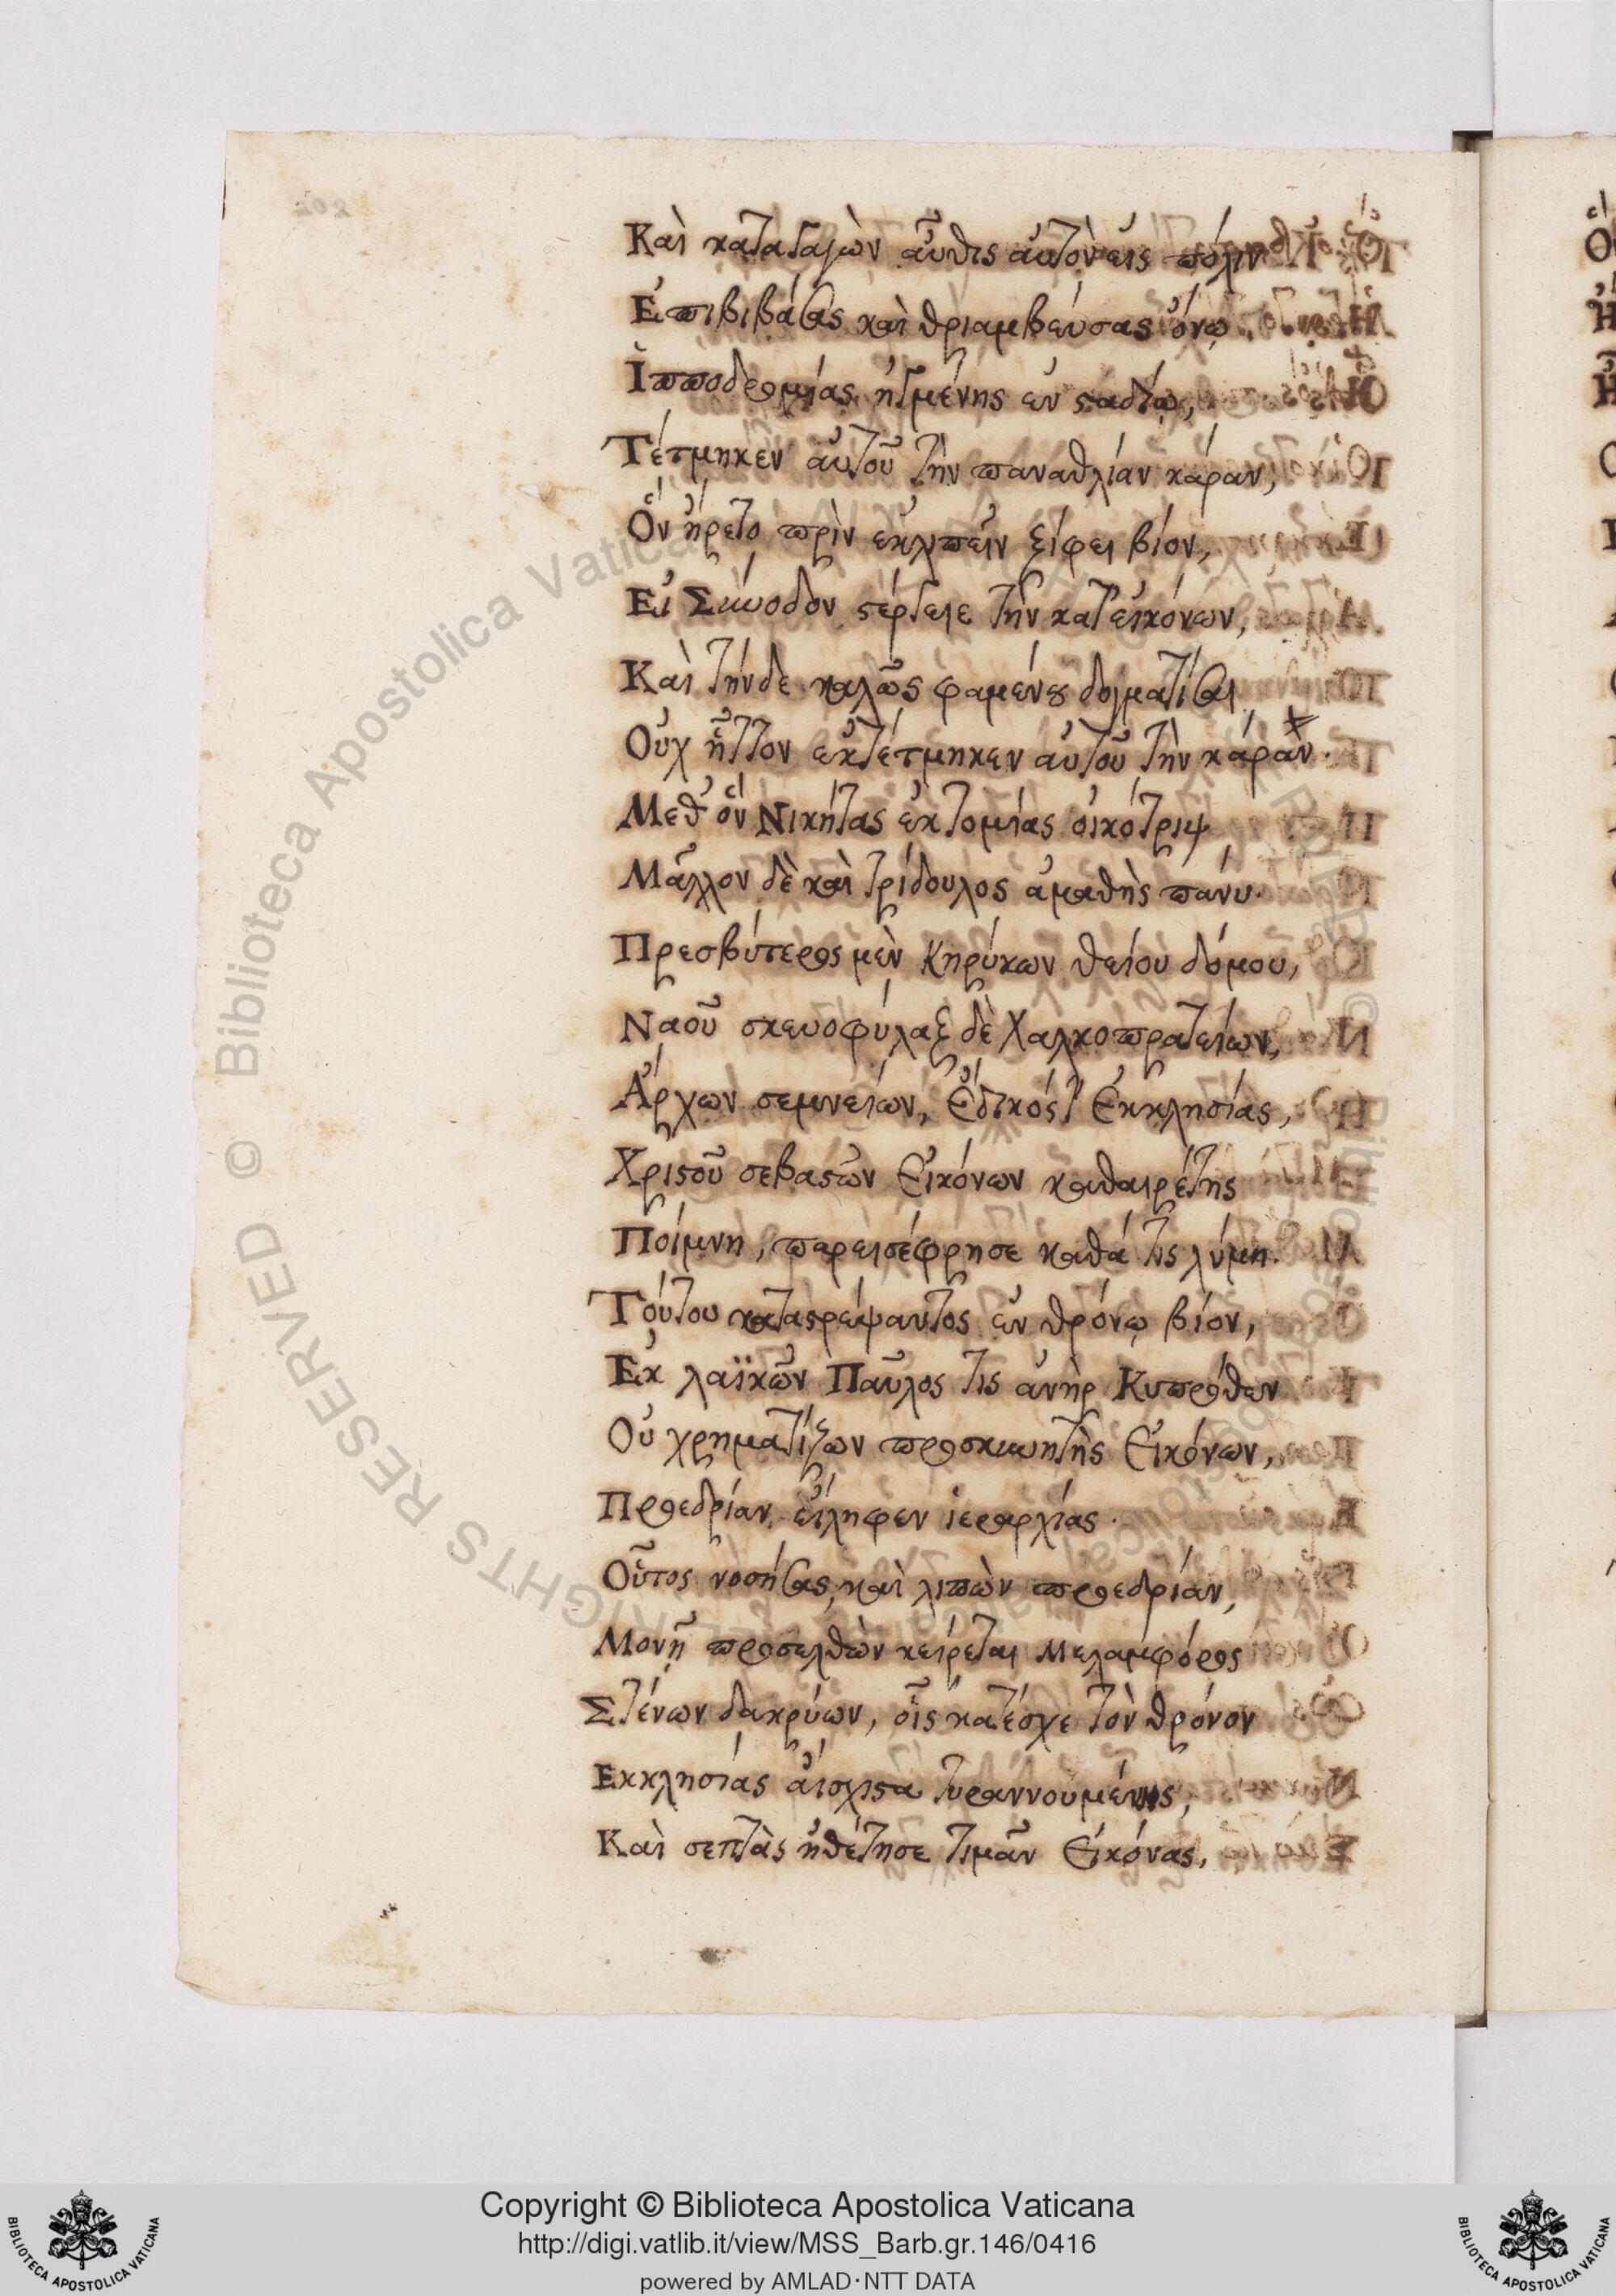 Καὶ καταγαγὼν αὖθις αὐτὸν εἰς πόλιν
Ἐπιβιβάσας καὶ θριαμβεύσας ὄνῳ
Ἱπποδρομίας ἠγμένης ἐν σταδίῳ,
Τέτμηκεν αὐτοῦ τὴν παναθλίαν κάραν,
Ὃν ἤρετο πρὶν ἐκλιπεῖν ξίφει βίον,
Εἰ Σύνοδον στέρξειε τὴν κατ' εἰκόνων,
Καὶ τήνδε καλῶς φαμένου δογματίσαι
Οὐχ ἧττον ἐκτέτμηκεν αὐτοῦ τὴν κάραν.
Μεθ' ὃν Νικήτας ἐκτομίας οἰκότριψ
Μᾶλλον δὲ καὶ τρίδουλος ἀμαθὴς πάνυ.
Πρεσβύτερος μὲν Κηρύκων θείου δόμου,
Ναοῦ σκευοφύλαξ δὲ Χαλκοπρατείων,
Ἄρχων σεμνείων, Ἔδικός τ' Ἐκκλησίας,
Χριστοῦ σεβαστῶν Εἰκόνων καθαιρέτης
Ποίμνῃ, παρεισέφρησε καθά τις λύμη.
Τούτου καταστρέψαντος ἐν θρόνῳ βίον,
Ἐκ λαϊκῶν Παῦλος τις ἀνὴρ Κυπρόθεν
Οὐ χρηματίζων προσκυνητὴς Εἰκόνων,
Προεδρίαν εἴληφεν ἱεραρχίας.
Οὗτος νοσήσας, καὶ λιπὼν προεδρίαν,
Μονῇ προσελθὼν κείρεται Μελαμφόρος
Στένων δακρύων, οἷς κατέσχε τὸν θρόνον
Εκκλησίας αἴσχιστα τυραννουμένης,
Καὶ σεπτὰς ἠθέτησε τιμᾶν Εἰκόνας,
© Biblioteca Apostolica Vaticana
RIGHTS RESERVED
Copyright © Biblioteca Apostolica Vaticana
http://digi.vatlib.it/view/MSS_Barb.gr.146/0416
powered by AMLAD·NTT DATA
BIBLIOTECA APOSTOLICA VATICANA
BIBLIOTECA APOSTOLICA VATICANA